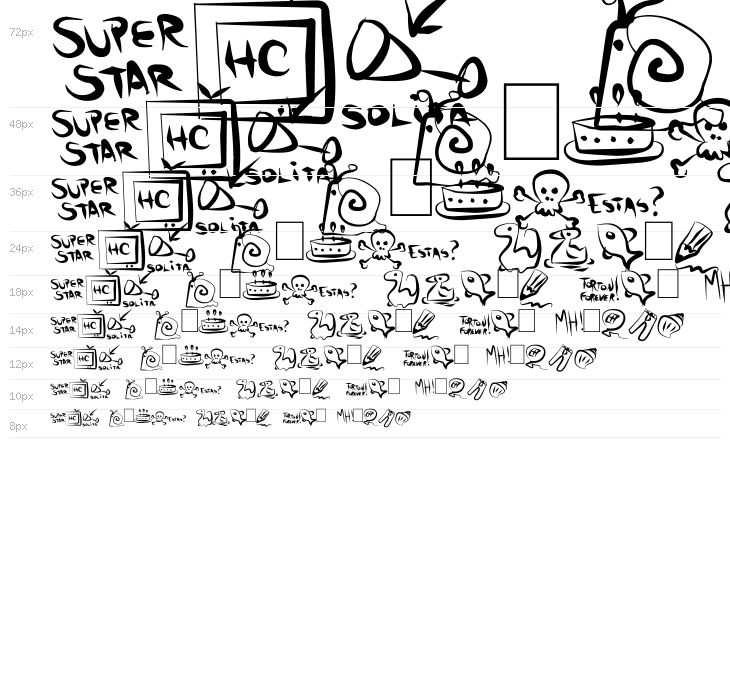 72px SUPER STAR HC SOLITA
48px SUPER STAR HC SOLITA
36px SUPER STAR HC SOLITA ESTAS?
24px SUPER STAR HC SOLITA ESTAS?
18px SUPER STAR HC SOLITA ESTAS? TORTON FOREVER! MH
14px SUPER STAR HC SOLITA ESTAS? TORTON FOREVER! MH!
12px SUPER STAR HC SOLITA ESTAS? TORTON FOREVER! MH!
10px SUPER STAR HC SOLITA ESTAS? TORTON FOREVER! MH!
8px SUPER STAR HC SOLITA ESTAS? TORTON FOREVER! MH!